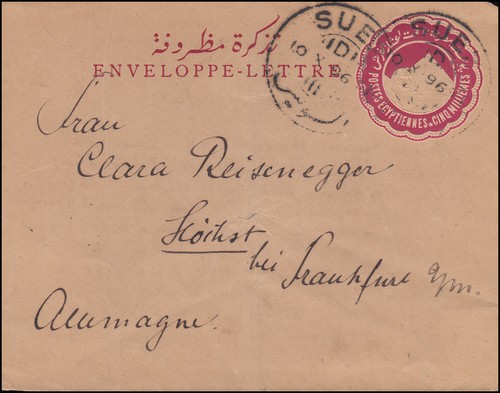 تذكرة مظروفة
ENVELOPPE-LETTRE
SUE
SUE
96
96
POSTES EGYPTIENNES
CINQ MILLIEMES
Frau
Clara Reisenegger
Höchst
bei Frankfurt a/m.
Allemagne.